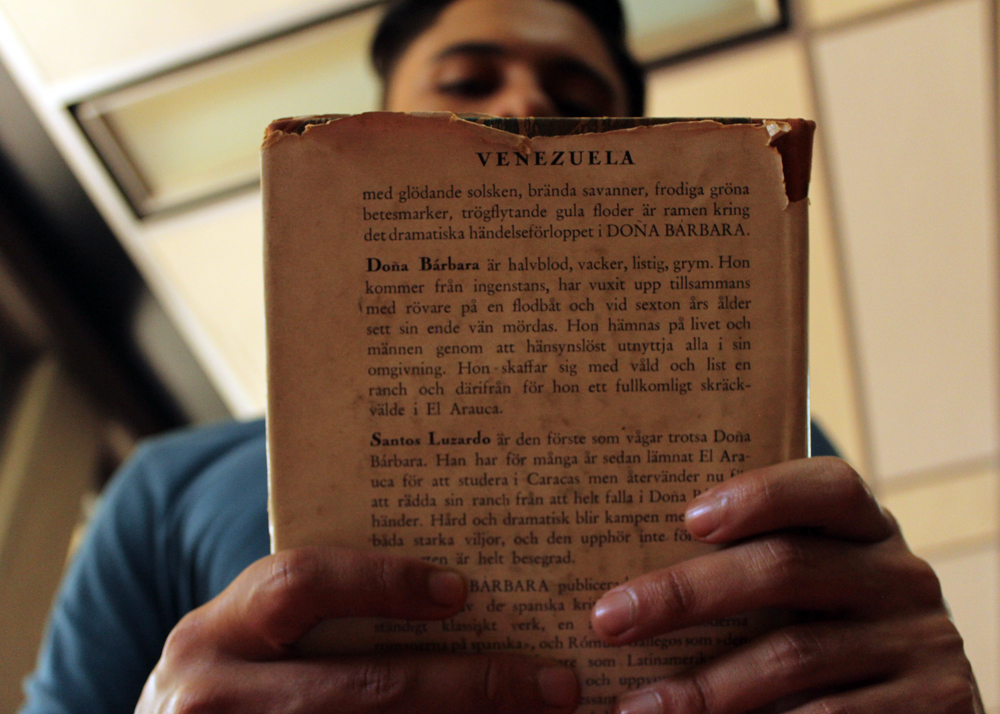 VENEZUELA
med glödande solsken, brända savanner, frodiga gröna
betesmarker, trögflytande gula floder är ramen kring
det dramatiska händelseförloppet i DOÑA BÁRBARA.
Doña Bárbara är halvblod, vacker, listig, grym. Hon
kommer från ingenstans, har vuxit upp tillsammans
med rövare på en flodbåt och vid sexton års ålder
sett sin ende vän mördas. Hon hämnas på livet och
männen genom att hänsynslöst utnyttja alla i sin
omgivning. Hon skaffar sig med våld och list en
ranch och därifrån för hon ett fullkomligt skräck-
välde i El Arauca.
Santos Luzardo är den förste som vågar trotsa Doña
Bárbara. Han har för många år sedan lämnat El Ara-
uca för att studera i Caracas men återvänder nu
att rädda sin ranch från att helt falla i Doña
händer. Hård och dramatisk blir kampen
båda starka viljor, och den upphör inte
är helt besegrad.
BÁRBARA
de spanska
ständigt klassiskt verk, en
på spanska», och Gallegos som »den
som
och